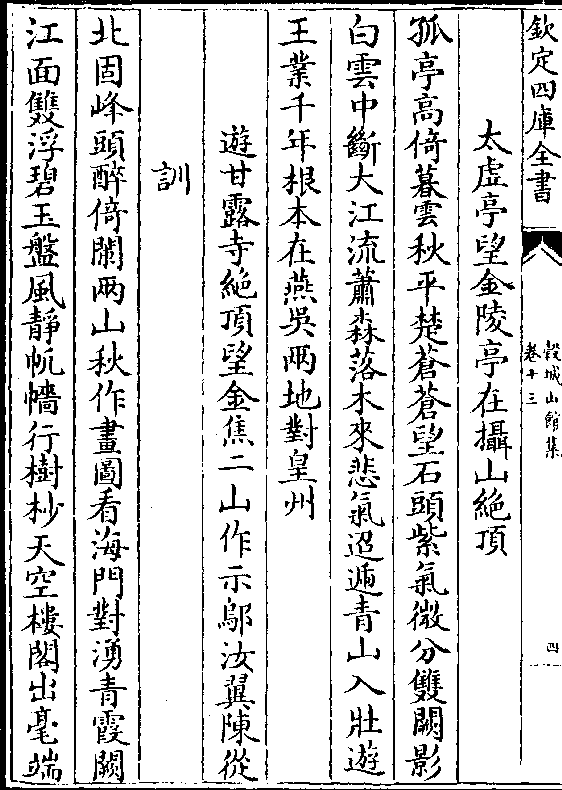 欽定四庫全書
穀城山館集
卷十三
四
太虚亭望金陵亭在攝山絶頂
孤亭高倚暮雲秋平楚蒼蒼望石頭紫氣微分雙闕影
白雲中斷大江流蕭森落木來悲氣迢遞青山入壯遊
王業千年根本在燕吳兩地對皇州
遊甘露寺絶頂望金焦二山作示鄔汝翼陳從
訓
北固峰頭醉倚闌兩山秋作畫圖看海門對湧青霞闕
江面雙浮碧玉盤風靜帆檣行樹杪天空樓閣出毫端